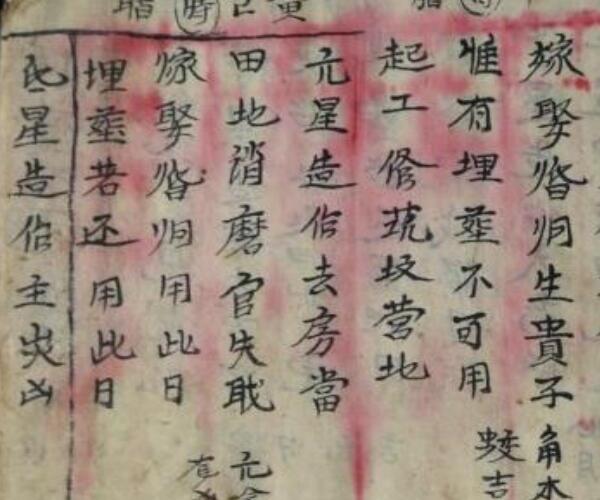 嫁娶婚归生貴子 角木
惟有埋葬不可用 蛟吉
起工修筑坟营地
亢星造作去房當
田地消磨官失职 亢
嫁娶婚归用此日
埋葬若还用此日
氐星造作主灾凶